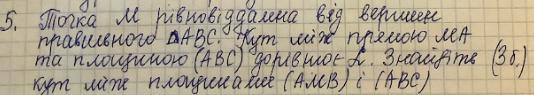 5. Точка М рівновіддалена від вершин
правильного ΔABC. Кут між прямою MA
та площиною (ABC) дорівнює α. Знайдіть (3б.)
кут між площинами (AMB) і (ABC)